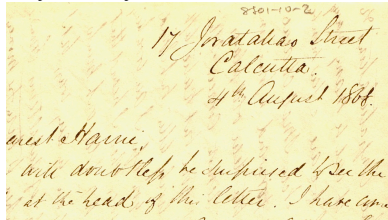 8301-10-2
17 Joratalao Street
Calcutta.
4th August 1868.
earest Harri,
will doubtless be surprised to see the
at the head of this letter. I have